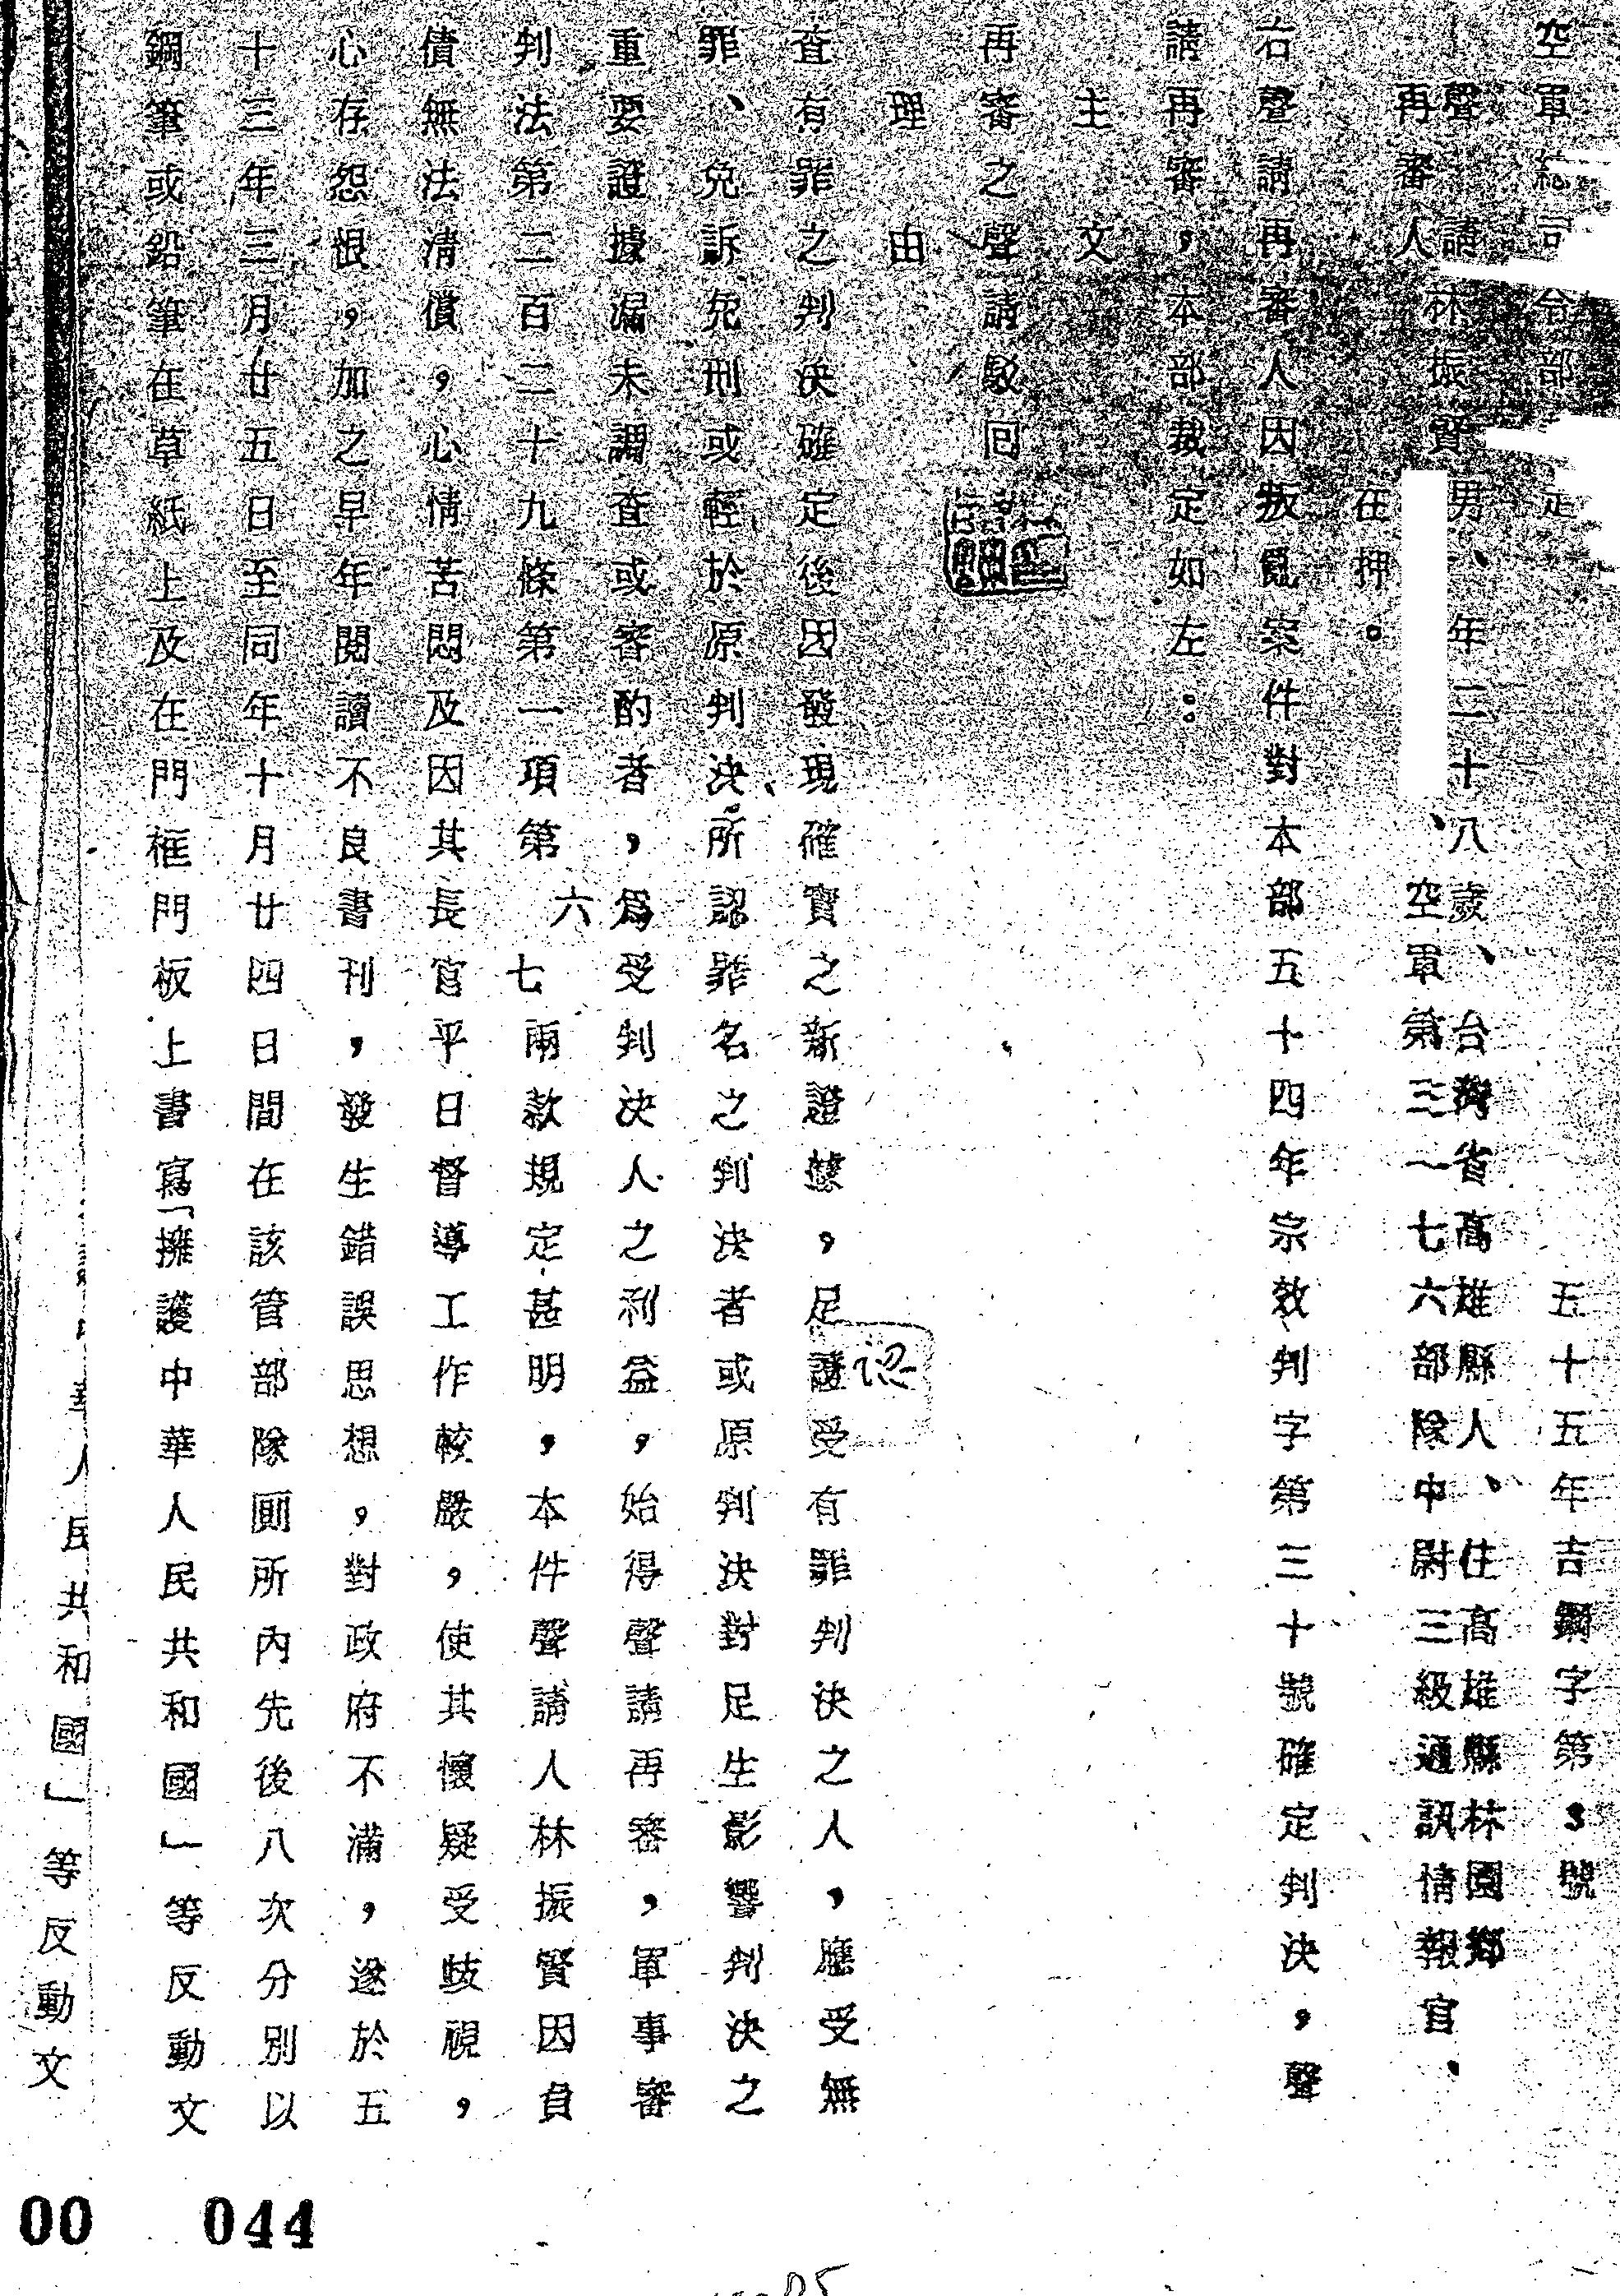 空軍總司令部
五十五年吉鋼字第3號
聲請
再審人
林振賢
男、年二十八歲、台灣省高雄縣人、住高雄縣林園鄉
、空軍第三一七六部隊中尉三級通訊情報官、
在押。
右聲請再審人因叛亂案件對本部五十四年宗效判字第三十號確定判決,聲
請再審,本部裁定如左:
主文
再審之聲請駁回
理由
認
查有罪之判決確定後因發現確實之新證據,足證受有罪判決之人,應受無
罪、免訴免刑或輕於原判決所認罪名之判決者或原判決對足生影響判決之
重要證據漏未調查或審酌者,為受判決人之利益,始得聲請再審,軍事審
判法第二百二十九條第一項第六七兩款規定甚明,本件聲請人林振賢因負
債無法清償,心情苦悶及因其長官平日督導工作較嚴,使其懷疑受歧視,
心存怨恨,加之早年閱讀不良書刊,發生錯誤思想,對政府不滿,遂於五
十三年三月廿五日至同年十月廿四日間在該管部隊厠所內先後八次分別以
鋼筆或鉛筆在草紙上及在門框門板上書寫「擁護中華人民共和國」等反動文
華人民共和國」等反動文
00 044